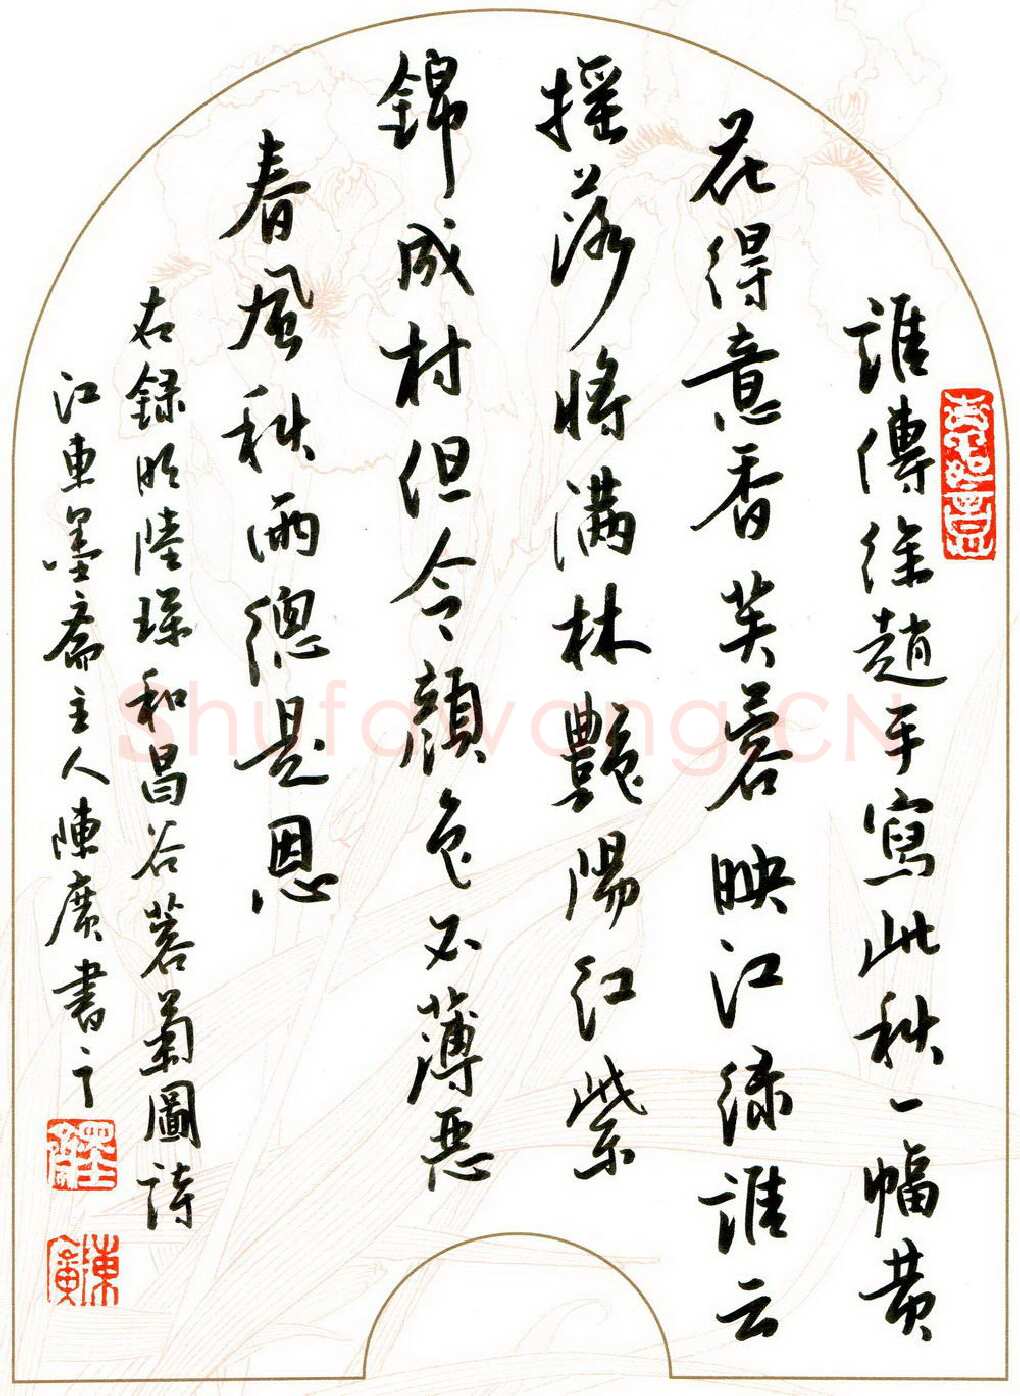 誰傳徐趙手寫此秋一幅黄
花得意香芙蓉映江綠誰云
搖落將满林艷陽红紫
錦成村但令顔色不薄惡
春風秋雨總是恩
右録明陸琛和昌谷蓉菊圖詩
江東墨斋主人陳廣書之
墨斋
陳廣
Shufawang.CN